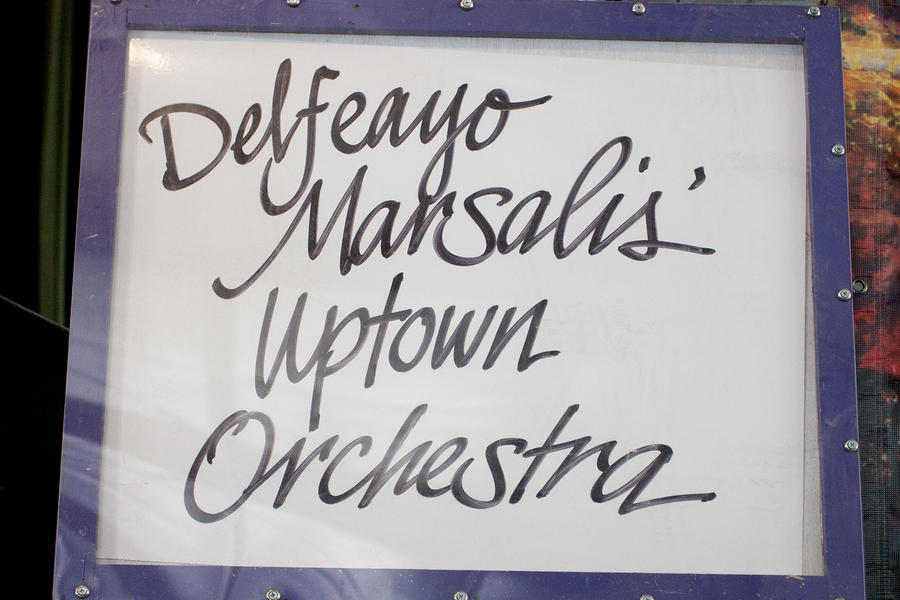 Delfeayo
Marsalis'
Uptown
Orchestra